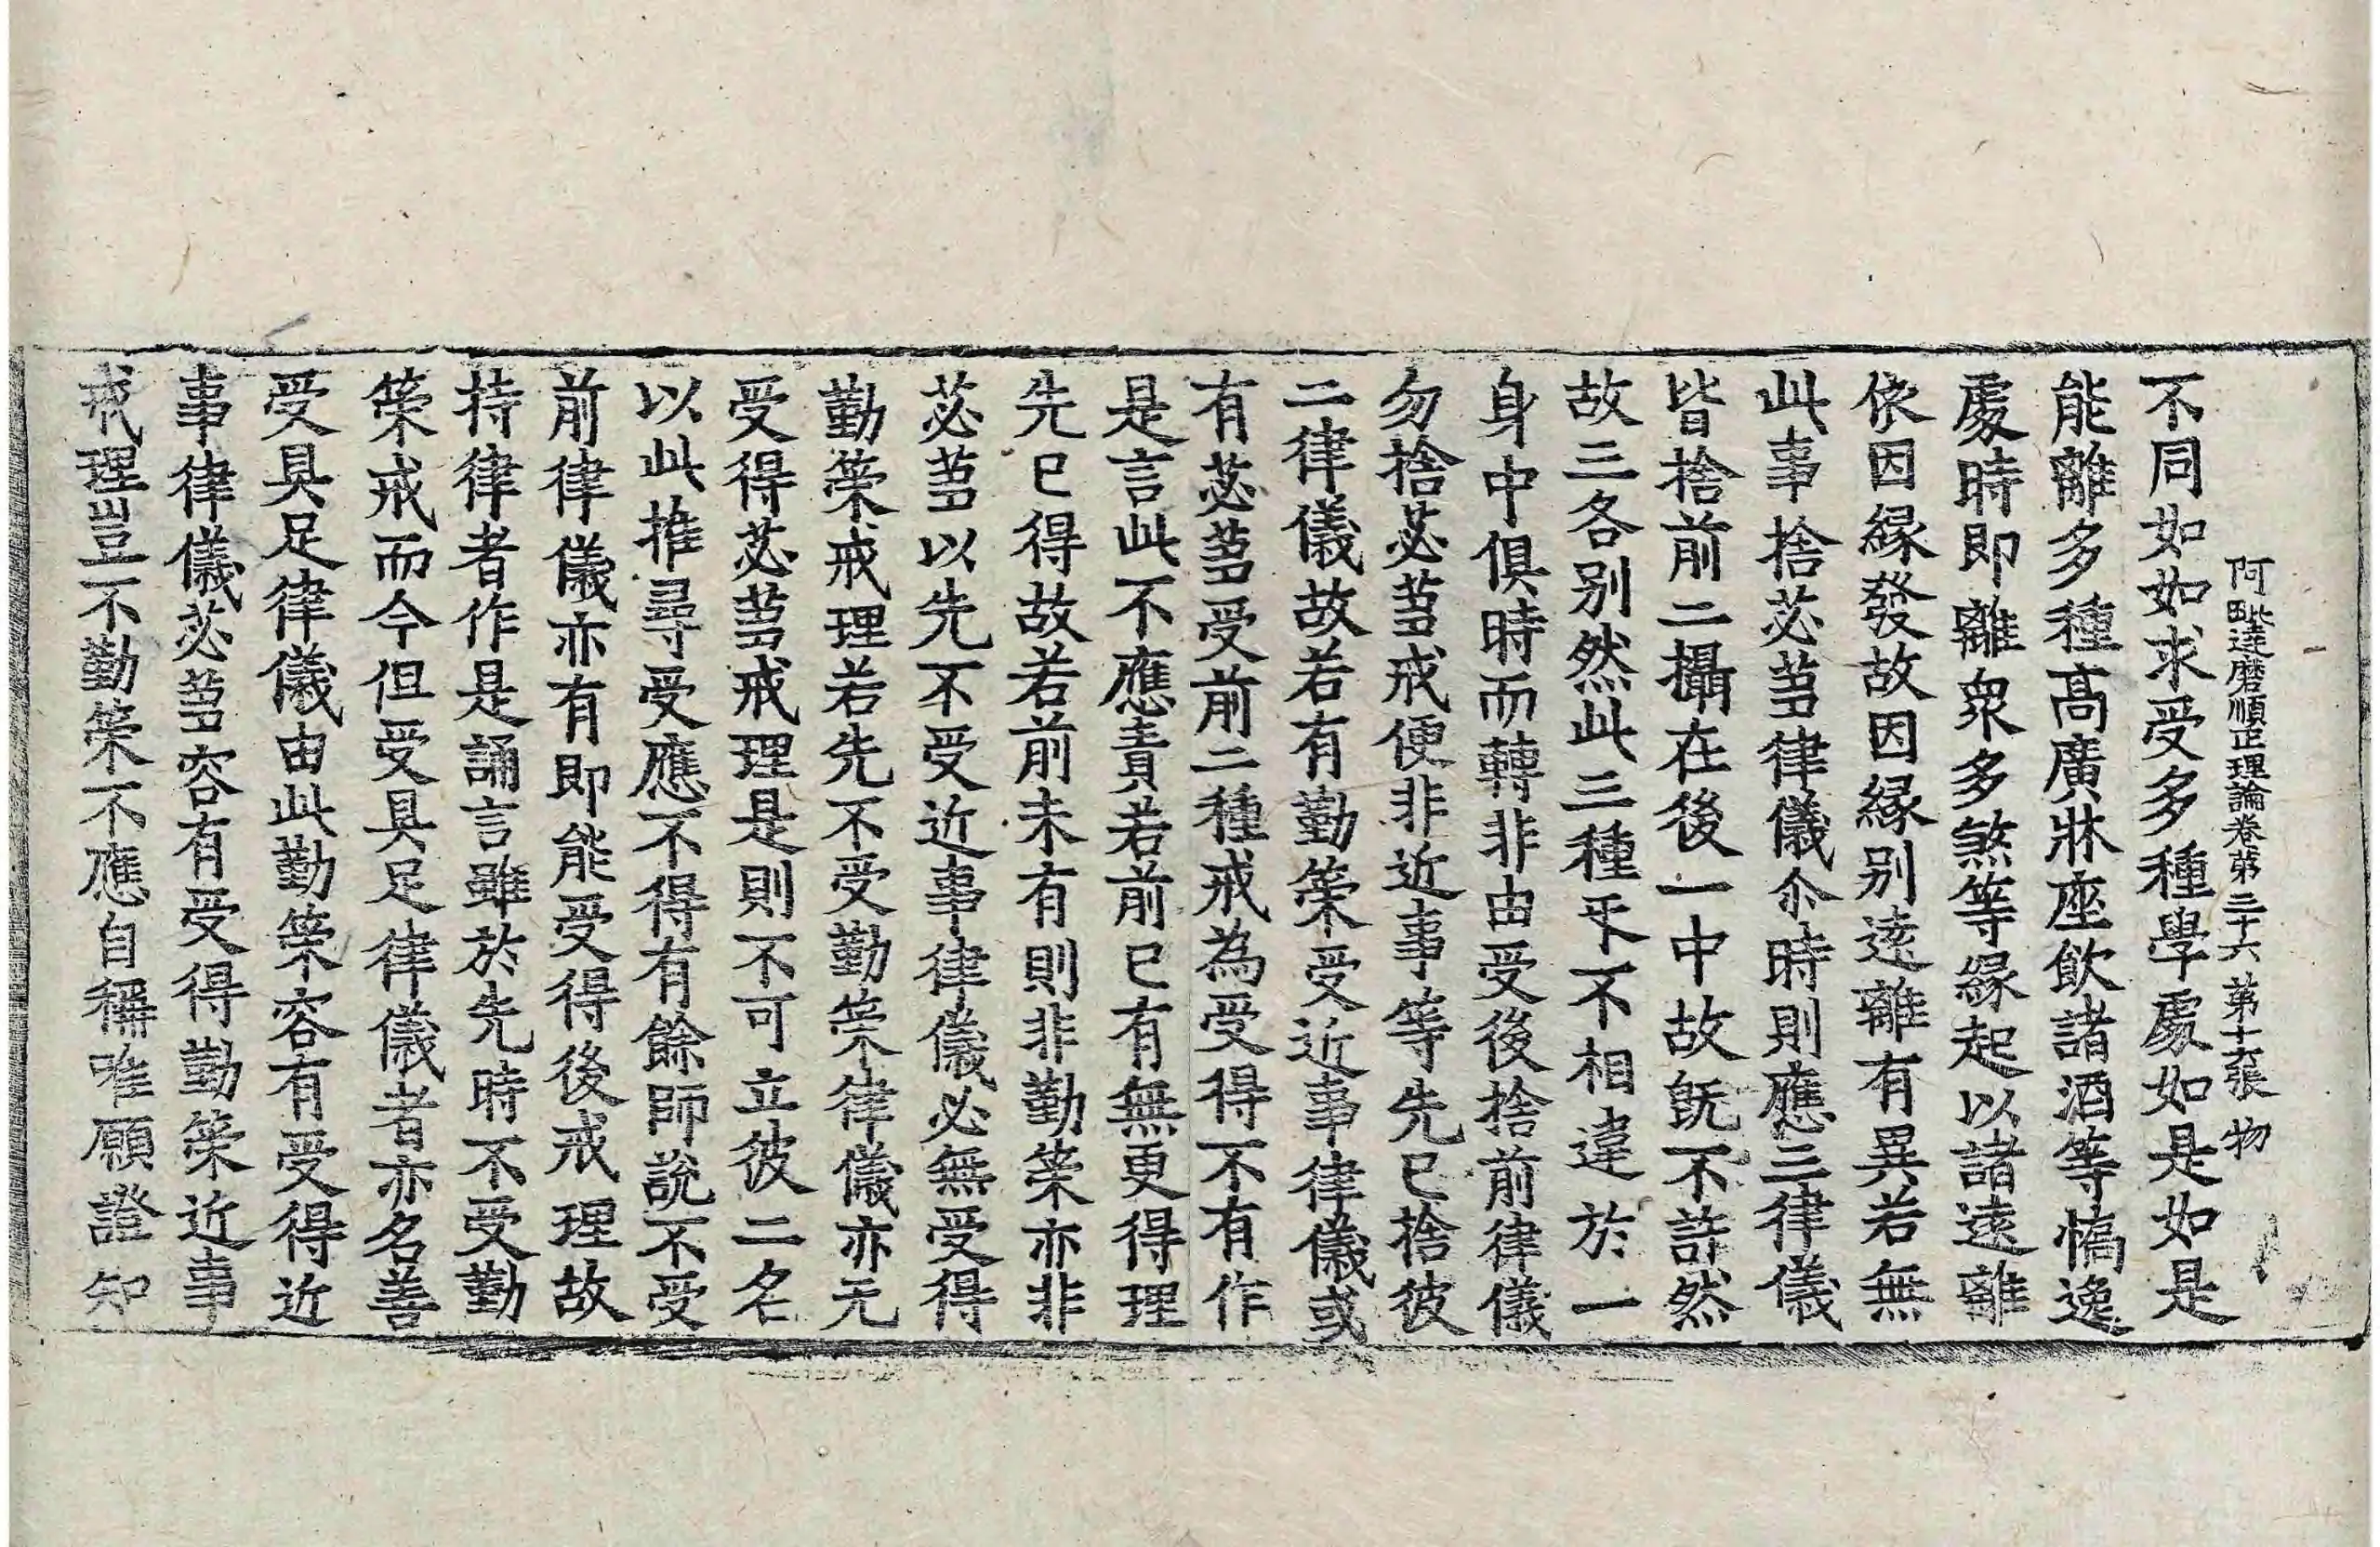 阿毗達磨順正理論卷第三十六 第十六張 物
不同如如求受多種學處如是如是
能離多種髙廣牀座飲諸酒等憍逸
處時即離衆多煞等緣起以諸遠離
依因緣發故因緣别遠離有異若無
此事捨苾芻律儀尒時則應三律儀
皆捨前二攝在後一中故旣不許然
故三各别然此三種㸦不相違於一
身中俱時而轉非由受後捨前律儀
勿捨苾芻戒便非近事等先已捨彼
二律儀故若有勤策受近事律儀或
有苾芻受前二種戒為受得不有作
是言此不應責若前已有無更得理
先已得故若前未有則非勤策亦非
苾芻以先不受近事律儀必無受得
勤策戒理若先不受勤策律儀亦无
受得苾芻戒理是則不可立彼二名
以此推尋受應不得有餘師說不受
前律儀亦有即能受得後戒理故
持律者作是誦言雖於先時不受勤
策戒而今但受具足律儀者亦名善
受具足律儀由此勤策容有受得近
事律儀苾芻容有受得勤策近事
戒理豈不勤策不應自稱唯願證知